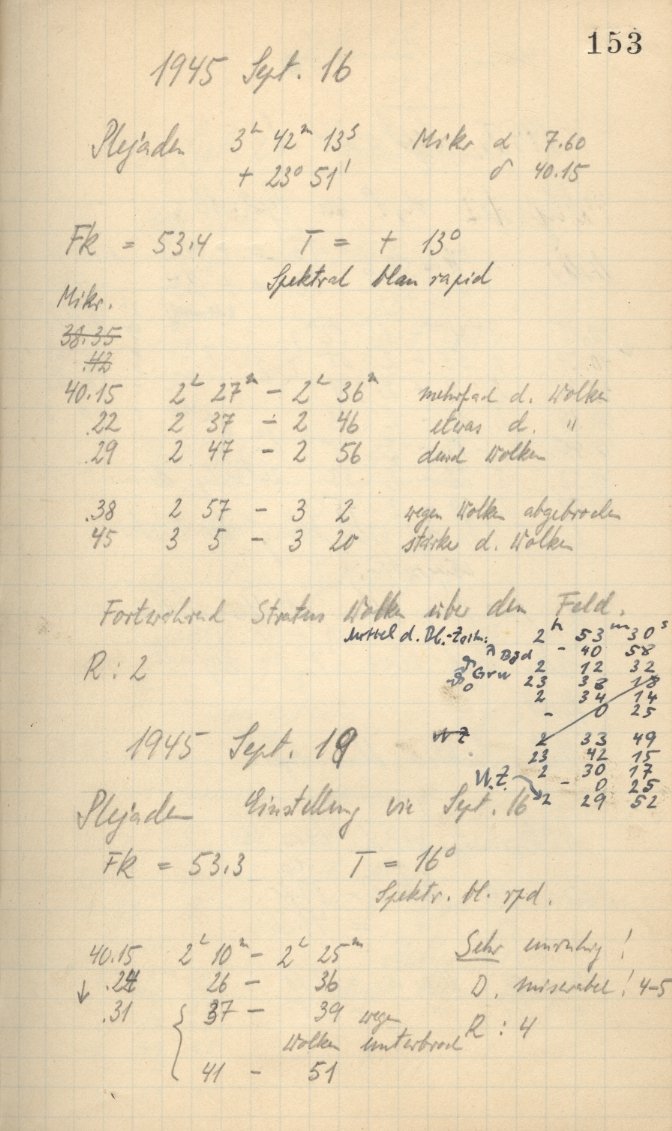 153
1945 Sept. 16
Plejaden 3ʰ 42ᵐ 13ˢ Mikr α 7.60
+ 23° 51' δ 40.15
Fk = 53.4 T = + 13°
Spektral blau rapid
Mikr.
38.35
.42
40.15 2ʰ 27ᵐ - 2ʰ 36ᵐ mehrfach d. Wolken
.22 2 37 - 2 46 etwas d. "
.29 2 47 - 2 56 durch Wolken
.38 2 57 - 3 2 wegen Wolken abgebrochen
45 3 5 - 3 20 starke d. Wolken
Fortwährend Stratus Wolken über dem Feld.
Mittel d. Bl.-Zeit: 2ʰ 53ᵐ 30ˢ
R : 2
λ Bgd - 40 58
Grw 2 12 32
23 38 18
2 34 14
- 0 25
1945 Sept. 19
WZ 2 33 49
23 42 15
2 30 17
- 0 25
W.Z. 2 29 52
Plejaden Einstellung wie Sept. 16
Fk = 53.3 T = 16°
Spektr. bl. rpd.
40.15 2ʰ 10ᵐ - 2ʰ 25ᵐ Sehr unruhig!
↓ .24 26 - 36 D. miserabel! 4-5
.31 37 - 39 wegen
Wolken unterbroch R : 4
41 - 51